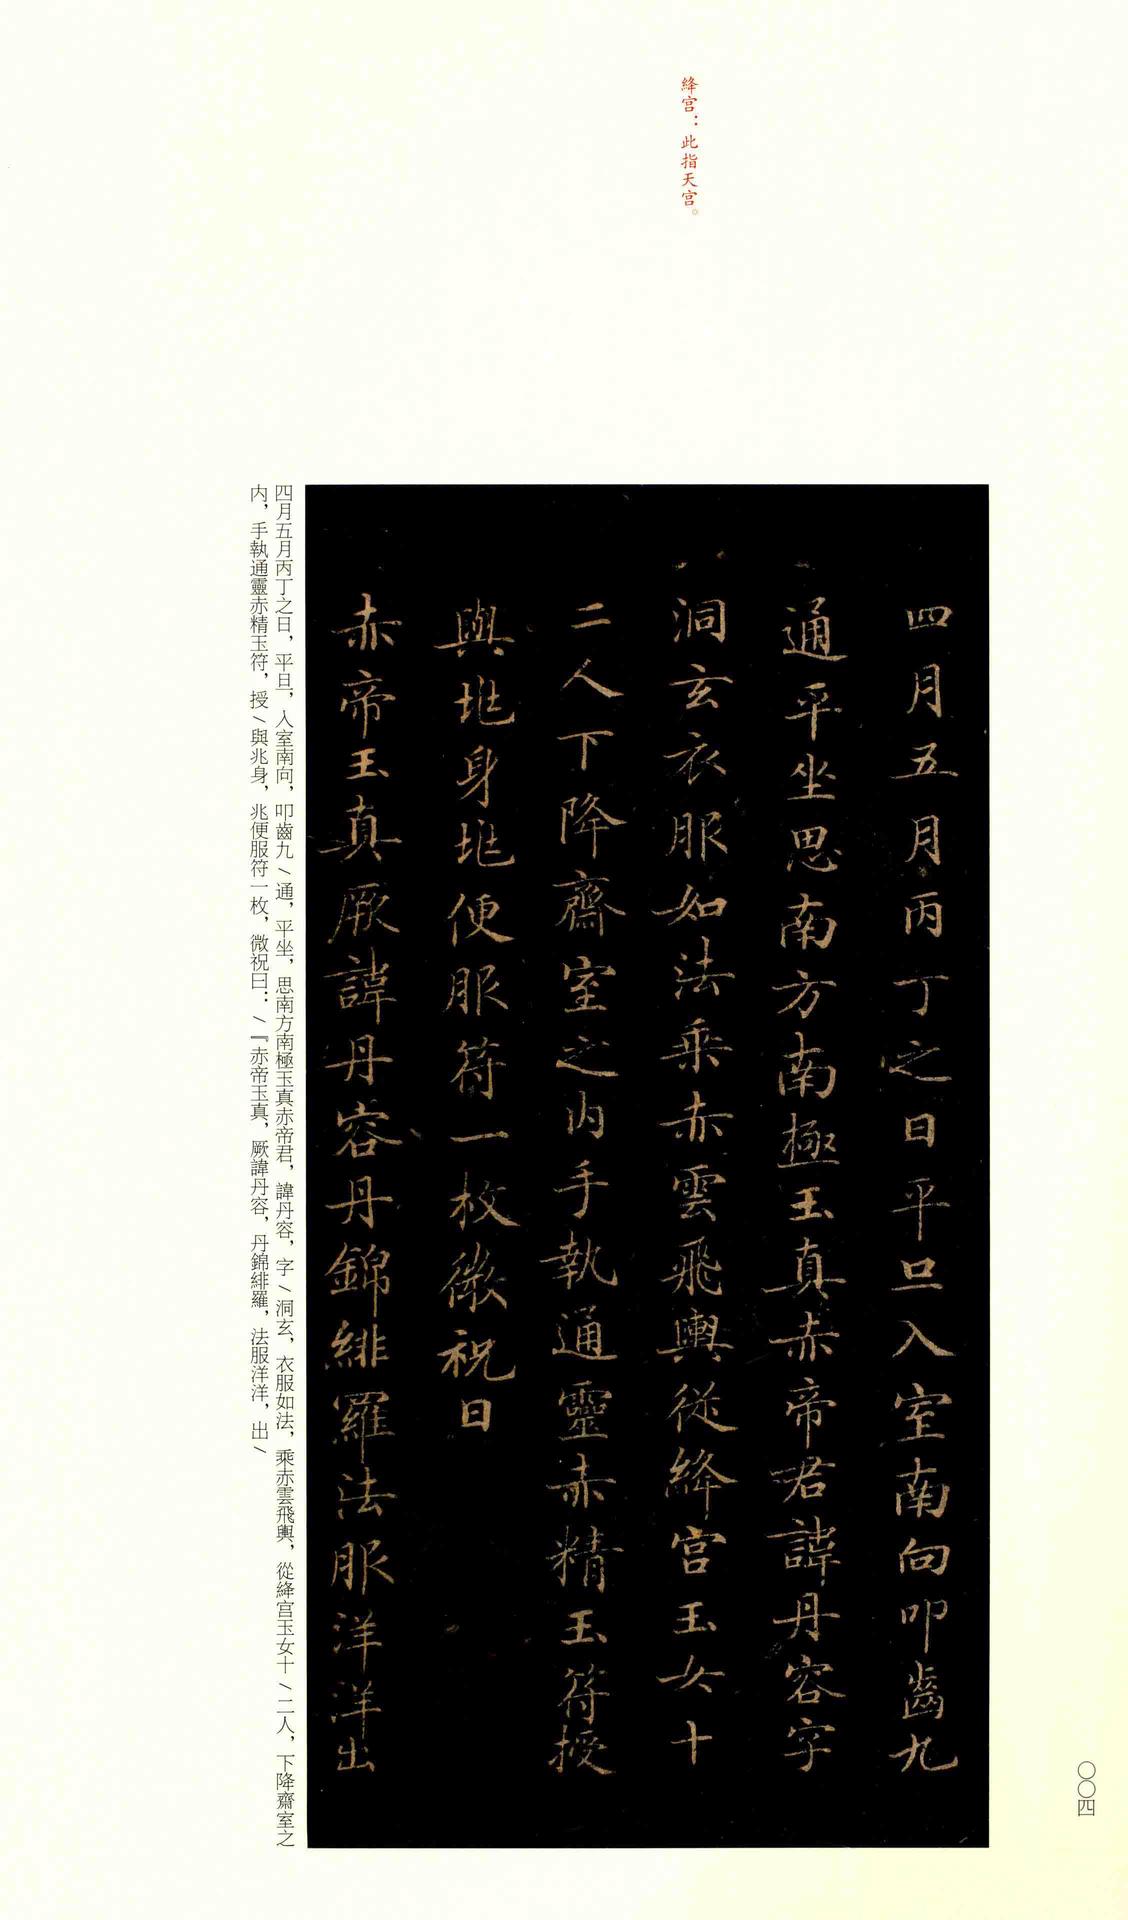 絳宫：此指天宫。
四月五月丙丁之日平旦入室南向叩齒九
通平坐思南方南極玉真赤帝君諱丹容字
洞玄衣服如法乘赤雲飛輿從絳宫玉女十
二人下降齋室之内手執通靈赤精玉符授
與兆身兆便服符一枚微祝曰
赤帝玉真厥諱丹容丹錦緋羅法服洋洋出
四月五月丙丁之日，平旦，入室南向，叩齒九╲通，平坐，思南方南極玉真赤帝君，諱丹容，字╲洞玄，衣服如法，乘赤雲飛輿，從絳宫玉女十╲二人，下降齋室之
内，手執通靈赤精玉符，授╲與兆身，兆便服符一枚，微祝曰：╲『赤帝玉真，厥諱丹容，丹錦緋羅，法服洋洋，出╲
〇〇四